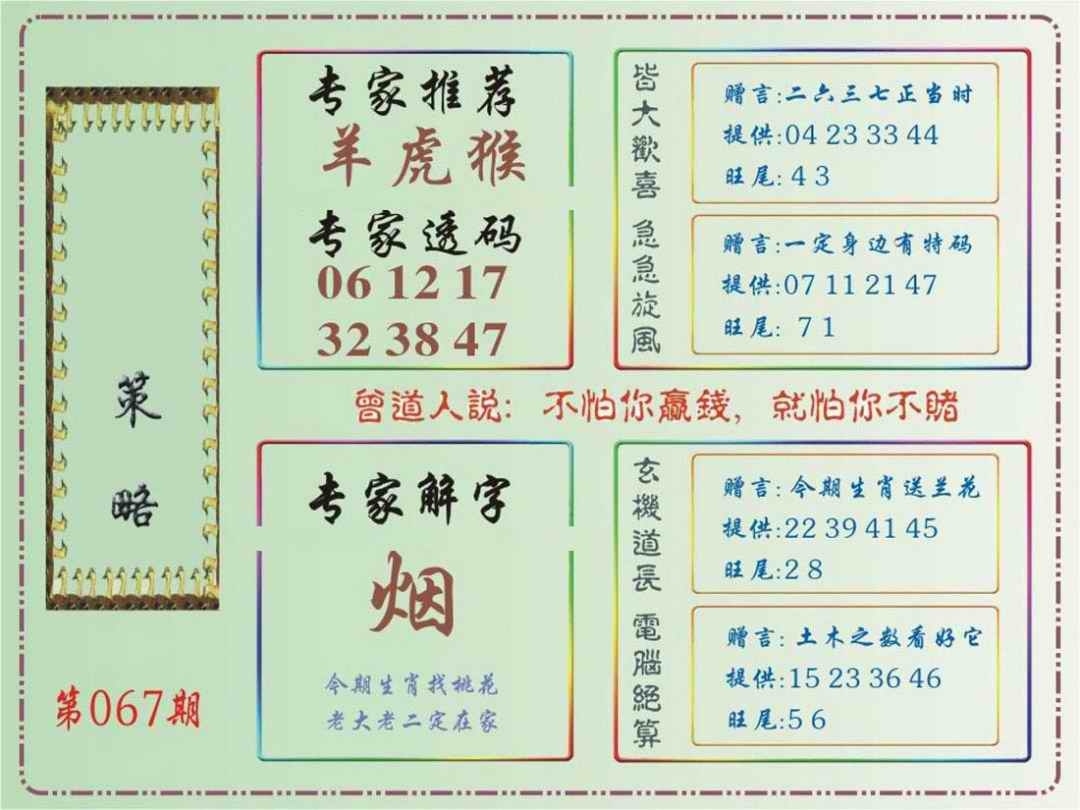 策略
第067期
专家推荐
羊虎猴
专家透码
06 12 17
32 38 47
皆大歡喜
赠言:二六三七正当时
提供:04 23 33 44
旺尾:4 3
急急旋風
赠言:一定身边有特码
提供:07 11 21 47
旺尾: 7 1
曾道人説: 不怕你贏錢, 就怕你不賭
专家解字
烟
今期生肖找桃花
老大老二定在家
玄機道長
赠言:今期生肖送兰花
提供:22 39 41 45
旺尾:2 8
電腦絕算
赠言:土木之数看好它
提供:15 23 36 46
旺尾:5 6